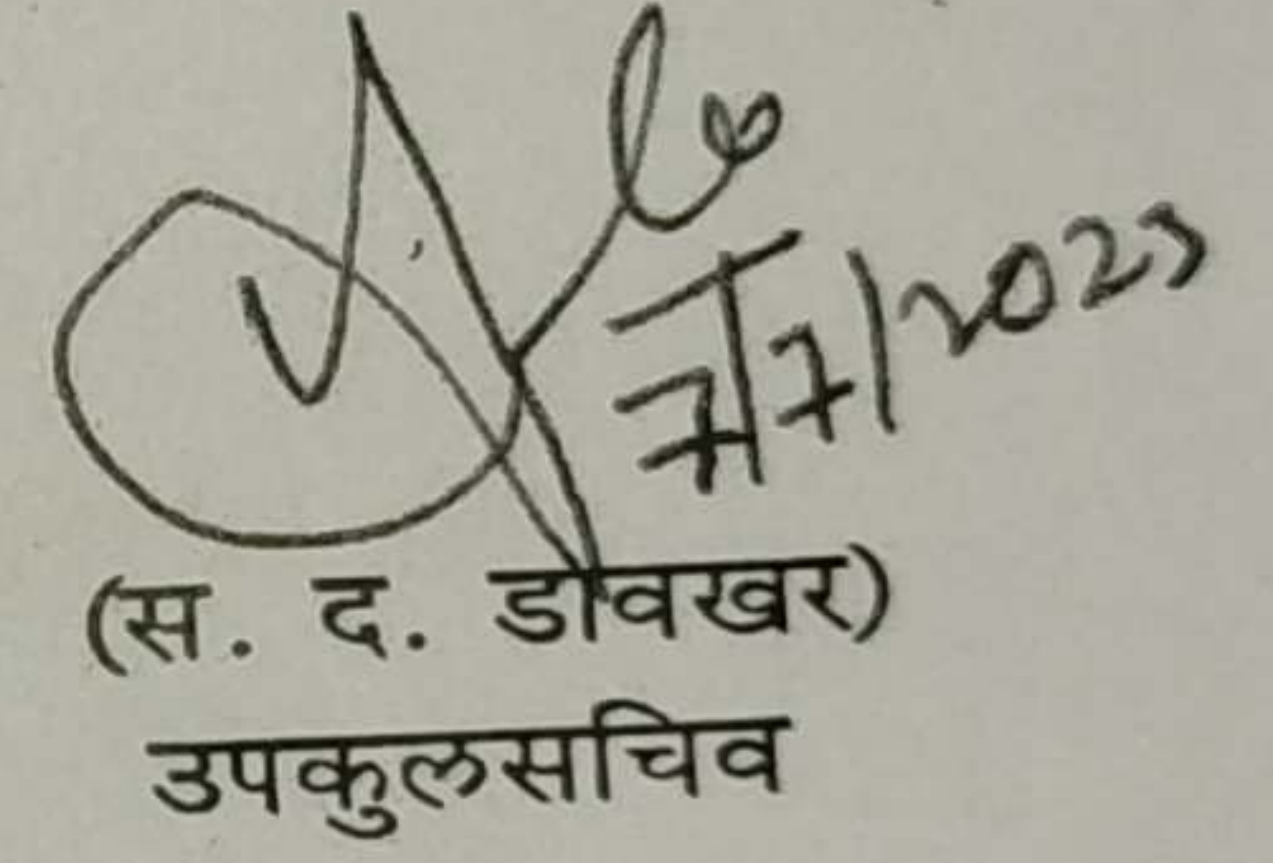 7/7/2023
(स. द. डावखर)
उपकुलसचिव